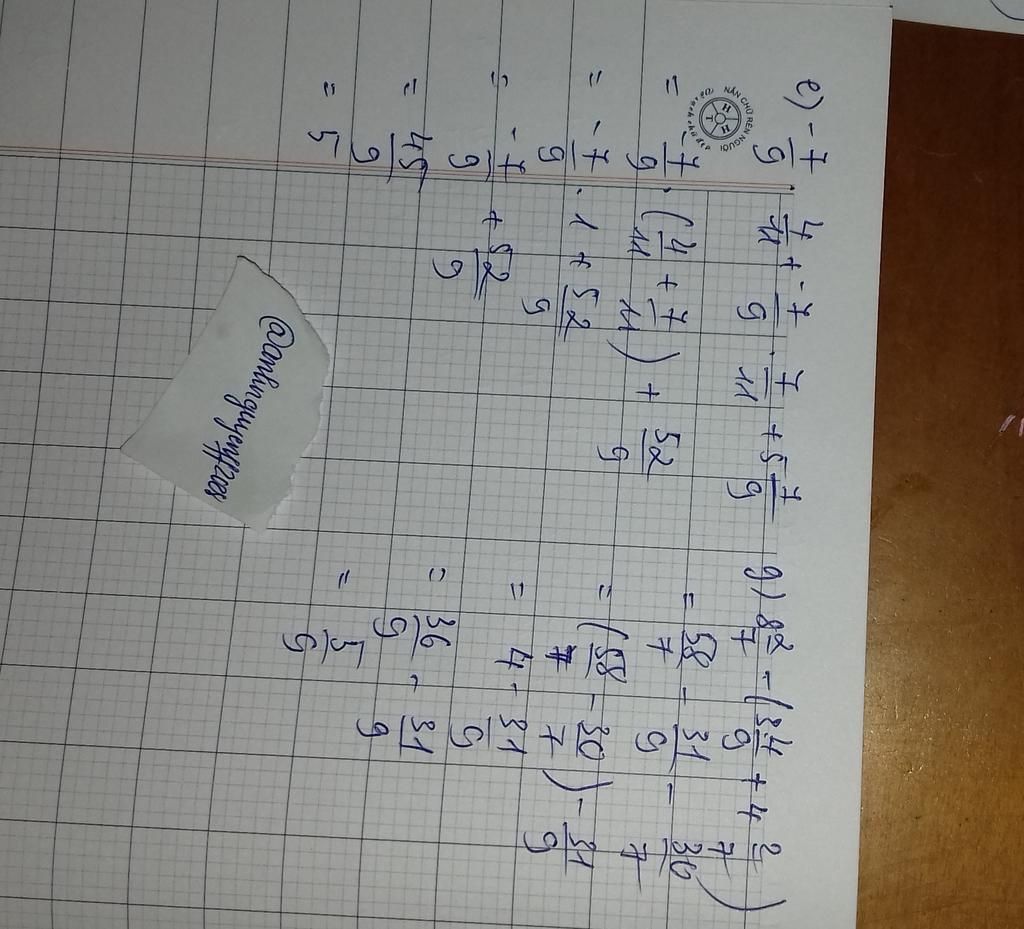 e) -7/9 . 4/11 + -7/9 . 7/11 + 5 7/9
= -7/9 . (4/11 + 7/11) + 52/9
= -7/9 . 1 + 52/9
= -7/9 + 52/9
= 45/9
= 5
g) 8 2/7 - (3 4/9 + 4 2/7)
= 58/7 - 31/9 - 30/7
= (58/7 - 30/7) - 31/9
= 4 - 31/9
= 36/9 - 31/9
= 5/9
NẮN CHỮ RÈN NGƯỜI
H H T